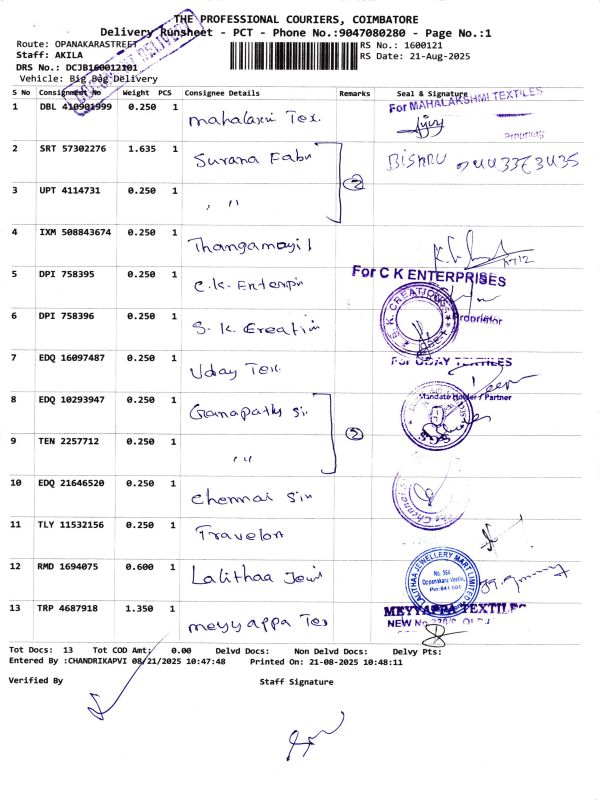 THE PROFESSIONAL COURIERS, COIMBATORE
Delivery Runsheet - PCT - Phone No.:9047080280 - Page No.:1
Route: OPANAKARASTREET
RS No.: 1600121
Staff: AKILA
RS Date: 21-Aug-2025
DRS No.: DCJB160012101
Vehicle: Big Bag Delivery
S No Consignment No Weight PCS Consignee Details Remarks Seal & Signature
1 DBL 410901999 0.250 1 Mahalaxmi Tex. For MAHALAKSHMI TEXTILES
Proprietor
2 SRT 57302276 1.635 1 Surana Fabri 2
3 UPT 4114731 0.250 1 , "
4 IXM 508843674 0.250 1 Thangamayil
5 DPI 758395 0.250 1 C.K. Enterpri For C K ENTERPRISES
Proprietor
6 DPI 758396 0.250 1 S. K. Creation S. K. CREATIONS
7 EDQ 16097487 0.250 1 Uday Tex. For UDAY TEXTILES
Mandate Holder / Partner
8 EDQ 10293947 0.250 1 Ganapathy Si 2
9 TEN 2257712 0.250 1 "
10 EDQ 21646520 0.250 1 Chennai Sil The Chennai
11 TLY 11532156 0.250 1 Travelon
12 RMD 1694075 0.600 1 Lalithaa Jewel LALITHAA JEWELLERY MART LIMITED
No. 564
Oppanakara Veethi,
Pin:641 001
13 TRP 4687918 1.350 1 Meyyappa Tex MEYYAPPA TEXTILES
NEW No
Tot Docs: 13 Tot COD Amt: 0.00 Delvd Docs: Non Delvd Docs: Delvy Pts:
Entered By :CHANDRIKAPVI 08/21/2025 10:47:48 Printed On: 21-08-2025 10:48:11
Verified By Staff Signature